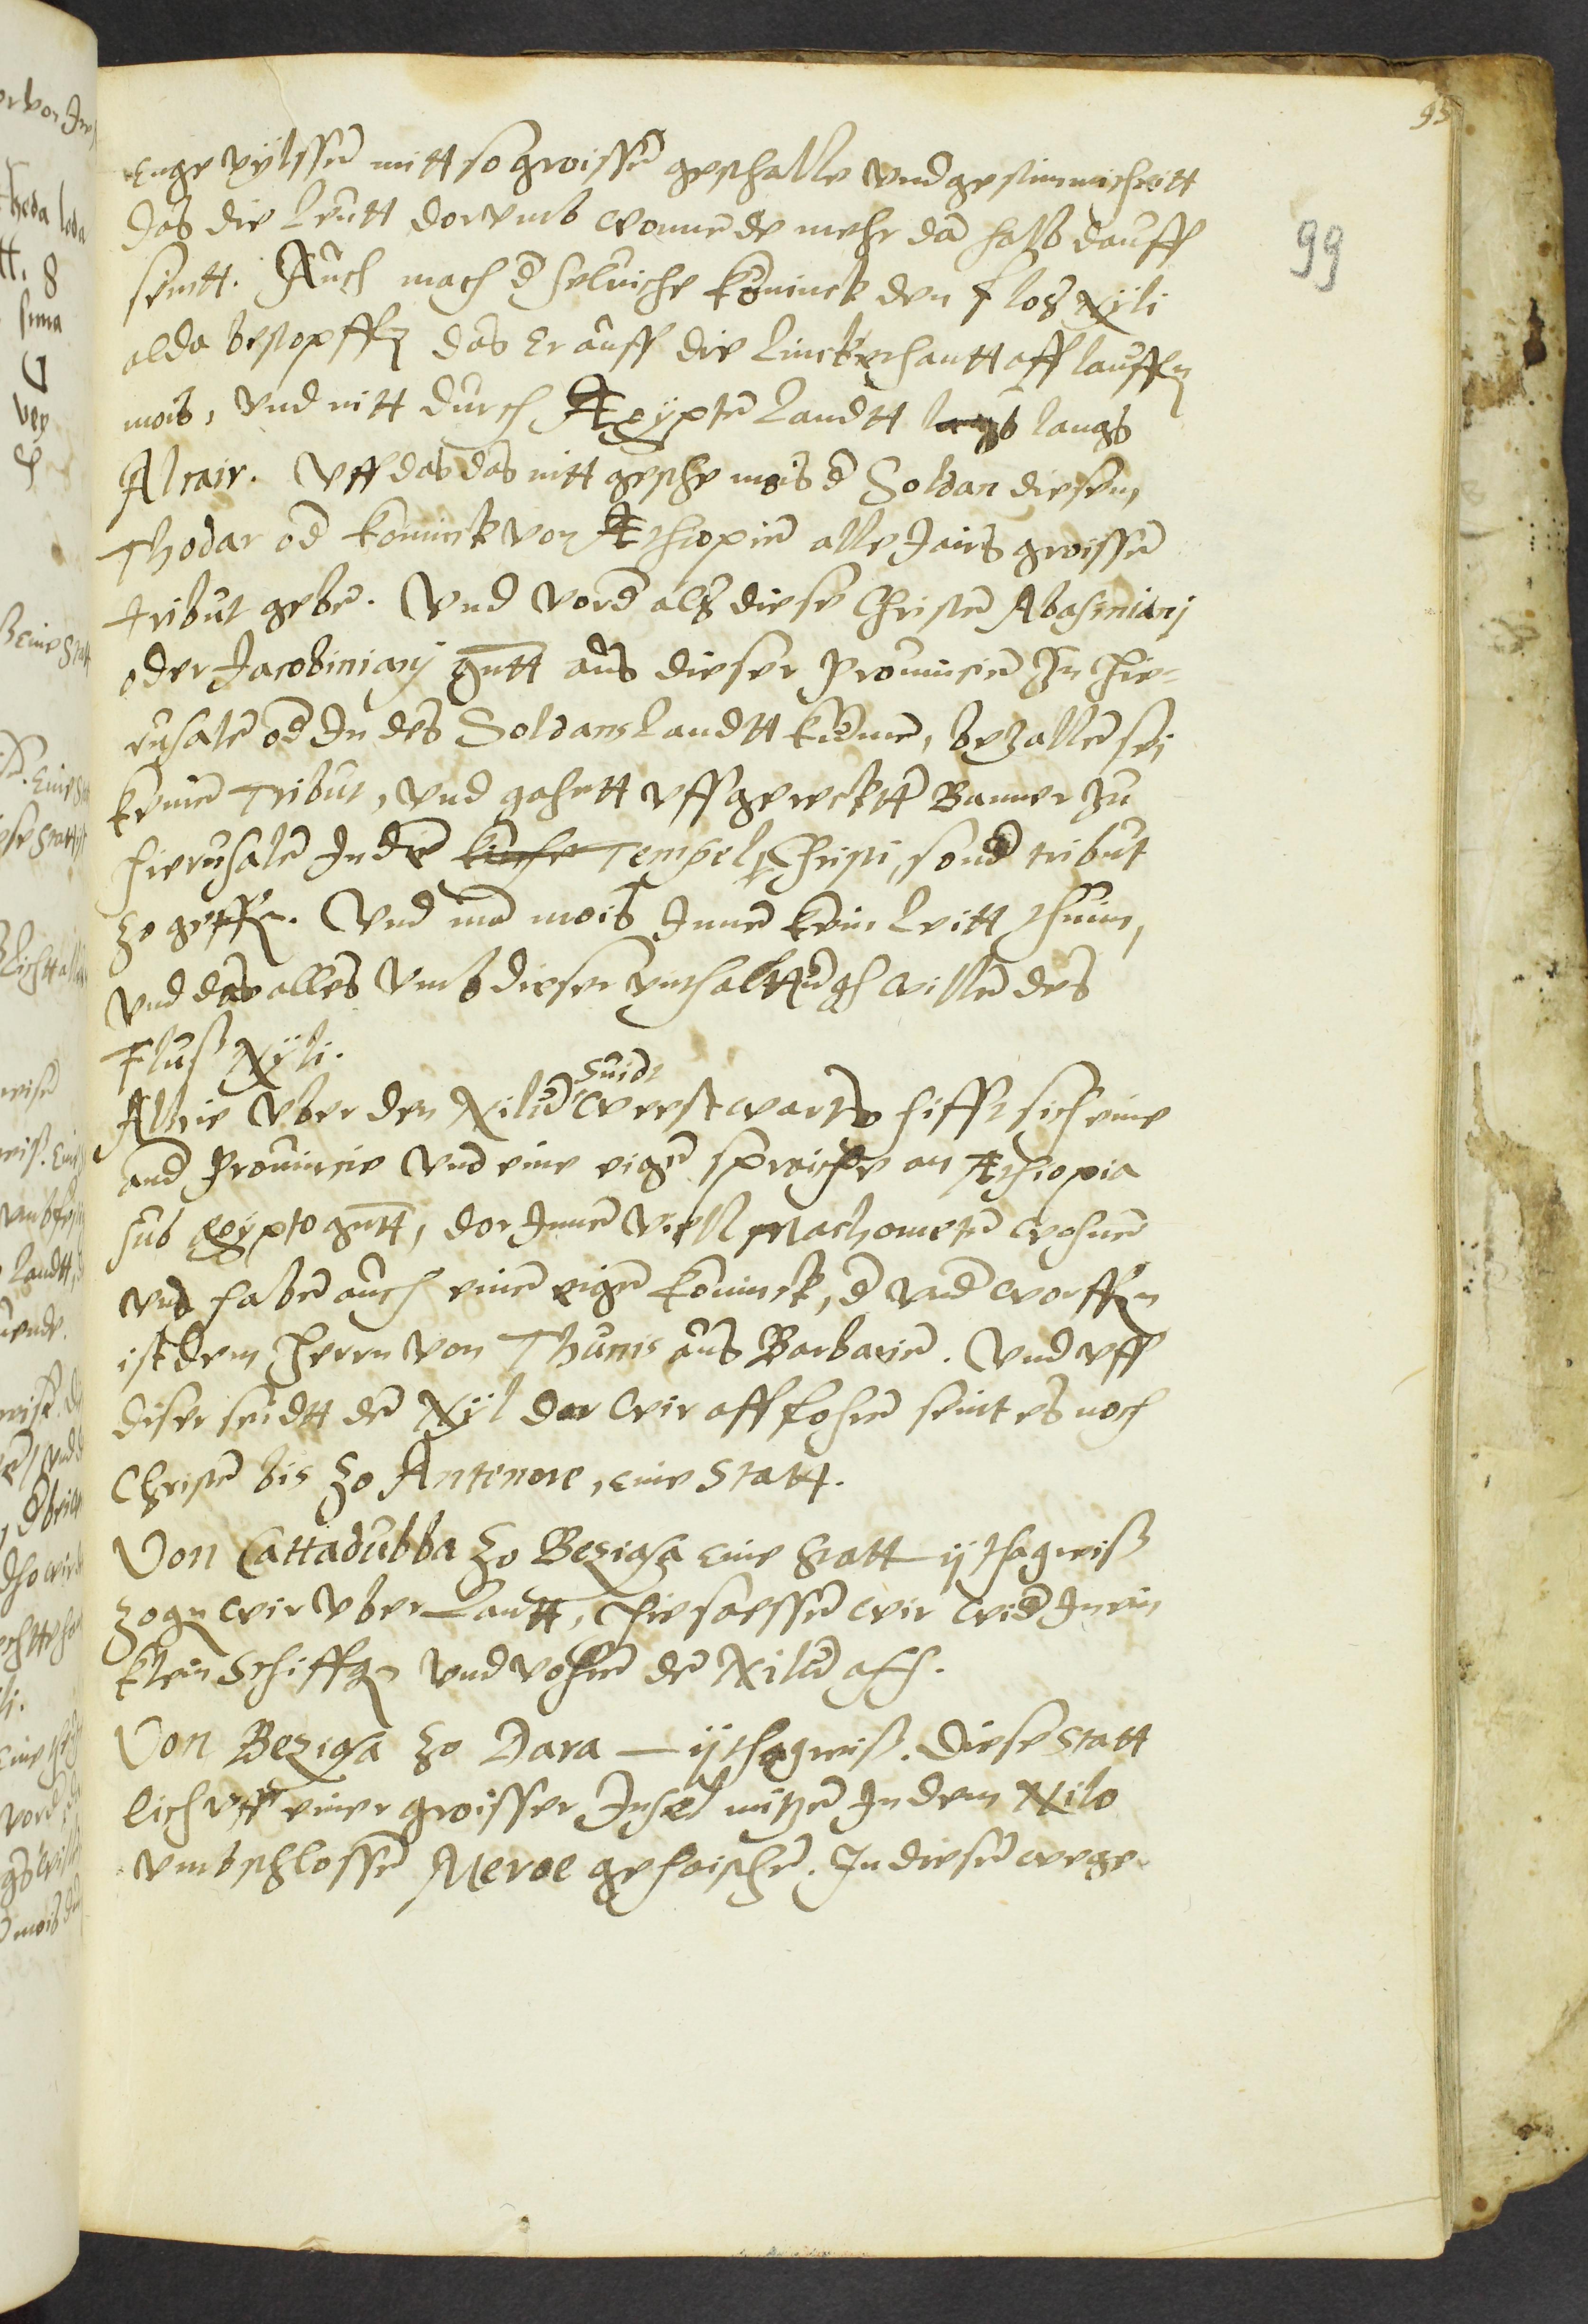 95
99
enge vylssen mitt so groissen geschalle vnd gestimmicheitt
das die leutt dorvmb wonnende mehr dan halb dauff
seintt. Auch mach d selviche koninck den flos Nÿli
alda bestopffen das er auff die linckerhantt aff lauffen
mois, vnd nitt durch Ægÿpten landtt langs langs
Alcair. Vff das das nitt geschee mois d Soldan diesem
Thodar od koninck von Æthiopien alle Jairs groissen
tribut geben. Vnd vord als diese Christen Abasiniani
oder Jacobiniani gntt aus dieser Prouincien In Hie-
rusalē od In des Soldans landtt kūmen, bezallen sei
keinen Tribut, vnd gahntt vffgerecktter Banner zu
Hierusalē In den kirche Tempel Christi, sond tribut
zo geffen. Vnd mā mois Innen kein leitt thuin,
vnd das alles vmb dieser enthaltungh willen des
Fluss Nÿli.
Alhie vber den Nilum suidt weestwarts hifft sich eine
and Prouincie vnd eine eigen spraiche an Æthiopia
sub Egypto gntt, dor Innen viell Machometen wohnen
vnd haben auch einen eigen koninck, d vnd worffen
ist dem Herrn von Thunis aus Barbarien. Vnd vff
diser seidtt den Nÿl dar wir aff fohren seint es noch
Christen bis zo Antenore, eine Statt.
Von Cattadubba zo Beziasa eine Statt — ij thagreiss
zogen wir vber lantt, hie saessen wir wid In ein
klein Schiffgen vnd vohren den Nilum aff.
Von Beziasa zo Dara — ij thagreiss. Diese Statt
lich vff einer groisser Insel mitzen In dem Nilo
vmbschlossen Meroe geheischen. In diesem wege